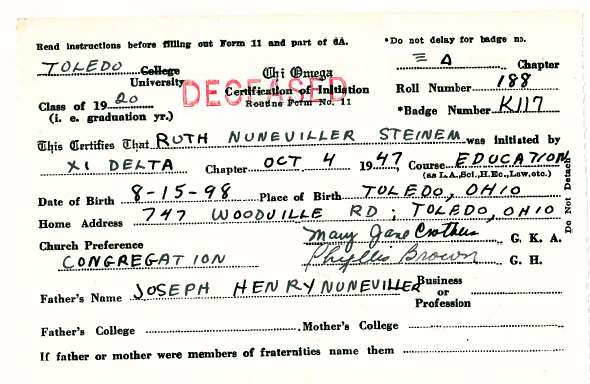 Read instructions before filling out Form 11 and part of 6A.
*Do not delay for badge no.
TOLEDO College
University
Chi Omega
Certification of Initiation
Routine Form No. 11
DECEASED
Ξ Δ Chapter
Roll Number 188
*Badge Number K117
Class of 1920
(i. e. graduation yr.)
This Certifies That RUTH NUNEVILLER STEINEM was initiated by
XI DELTA Chapter OCT 4 1947, Course EDUCATION
(as L.A., Sci., H.Ec., Law, etc.)
Date of Birth 8-15-98 Place of Birth TOLEDO, OHIO
Home Address 747 WOODVILLE RD; TOLEDO, OHIO
Do Not Detach
Church Preference
CONGREGATION
Mary Jane Crothers G. K. A.
Phyllis Brown G. H.
Father's Name JOSEPH HENRY NUNEVILLER Business
or
Profession
Father's College Mother's College
If father or mother were members of fraternities name them